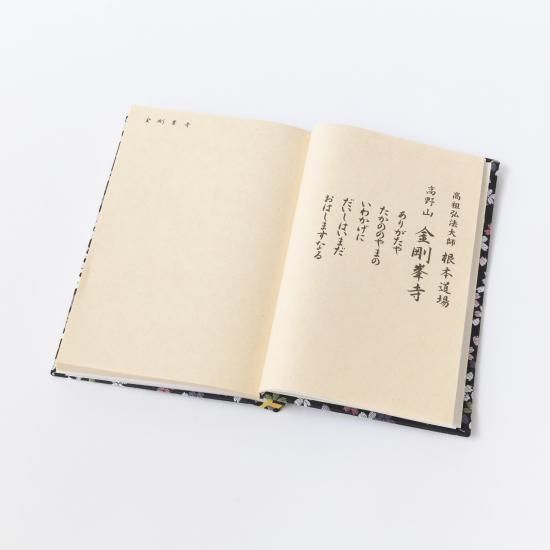 高祖弘法大師 根本道場
高野山 金剛峯寺
ありがたや
たかののやまの
いわかげに
だいしはいまだ
おはしますなる
金剛峯寺